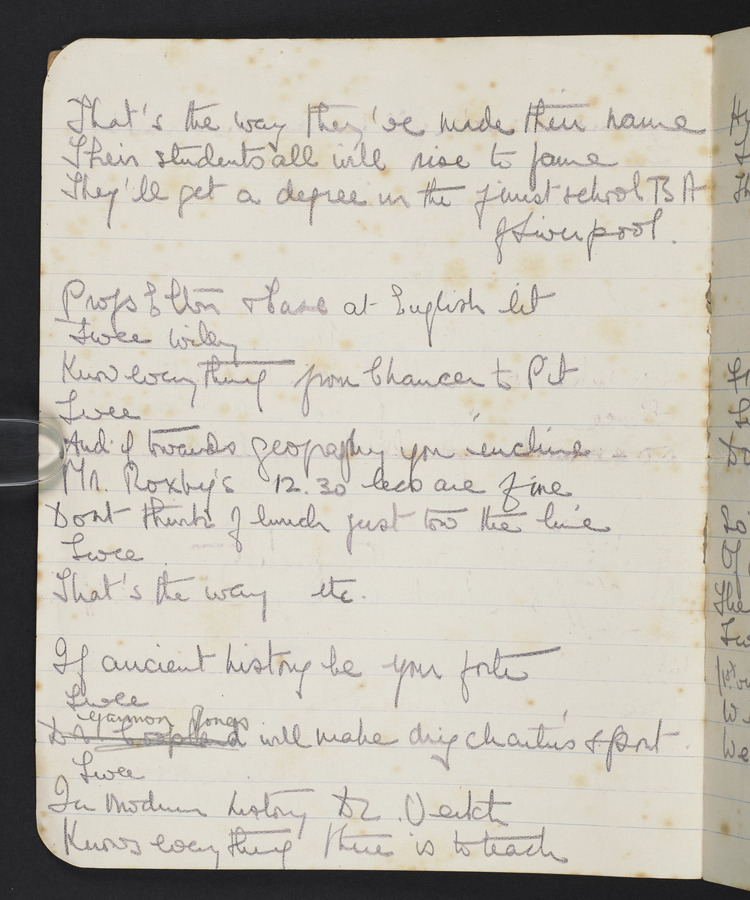 That's the way they've made their name
Their students all will rise to fame
They'll get a degree in the finest school B A
of Liverpool.
Profs Elton & at English lit
Twee
Know everything from Chaucer to Pit
Twee
And if towards geography you incline
Mr. Roxby's 12.30 lecs are fine
Dont think of lunch just tow the line
Twee
That's the way etc.
If ancient history be your forte
Twee
Garmon Jones
Dr will make dry charters sport
Twee
In modern history Dr. Veitch
Knows everything there is to teach